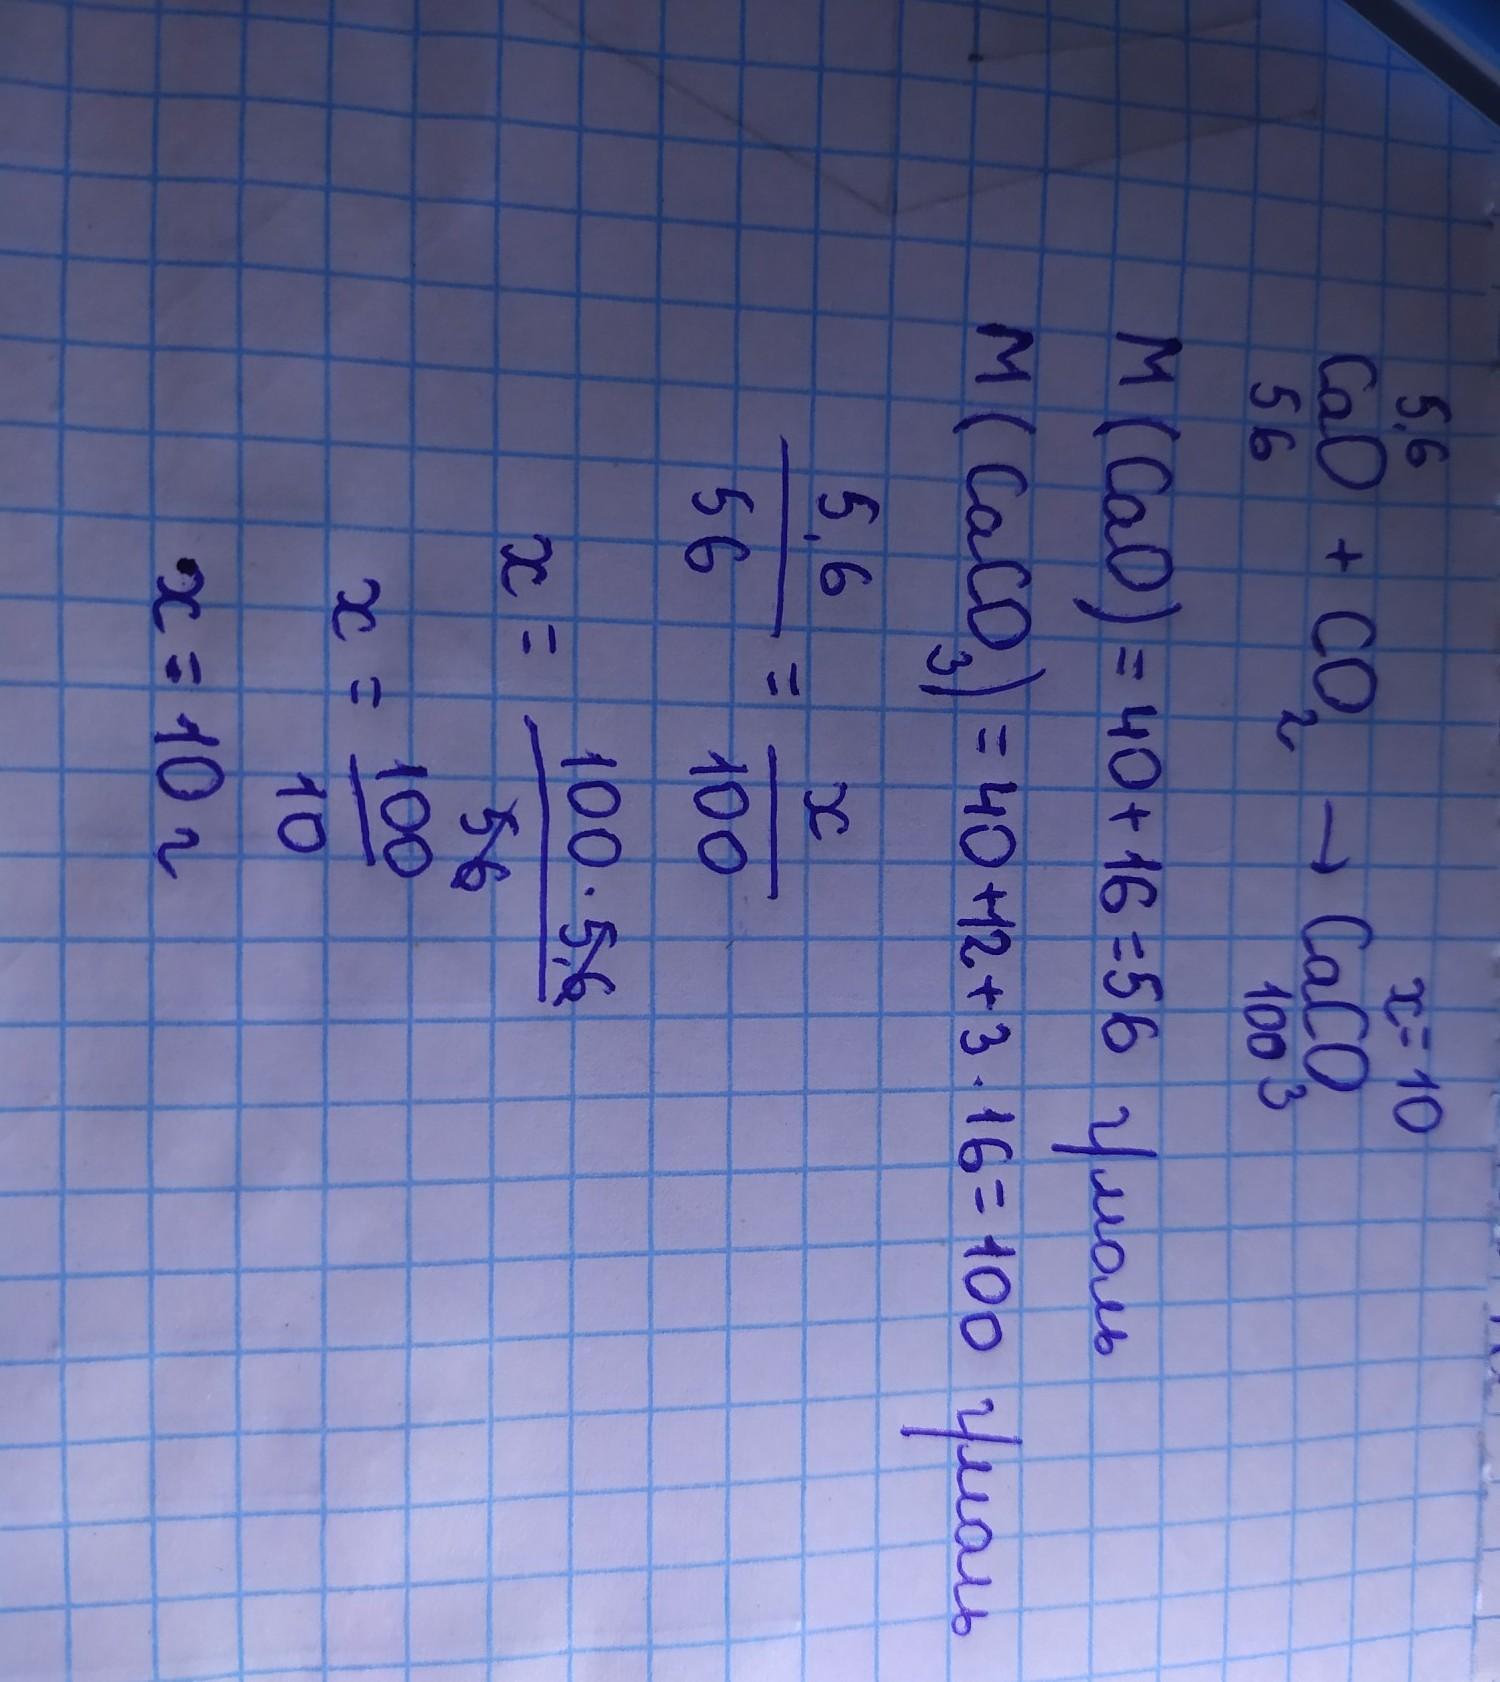 5,6 x=10
CaO + CO₂ → CaCO₃
56 100
M (CaO) = 40+16=56 г/моль
M (CaCO₃) = 40+12+3·16=100 г/моль
5,6/56 = x/100
x = 100·5,6/56
x = 100/10
x = 10 г